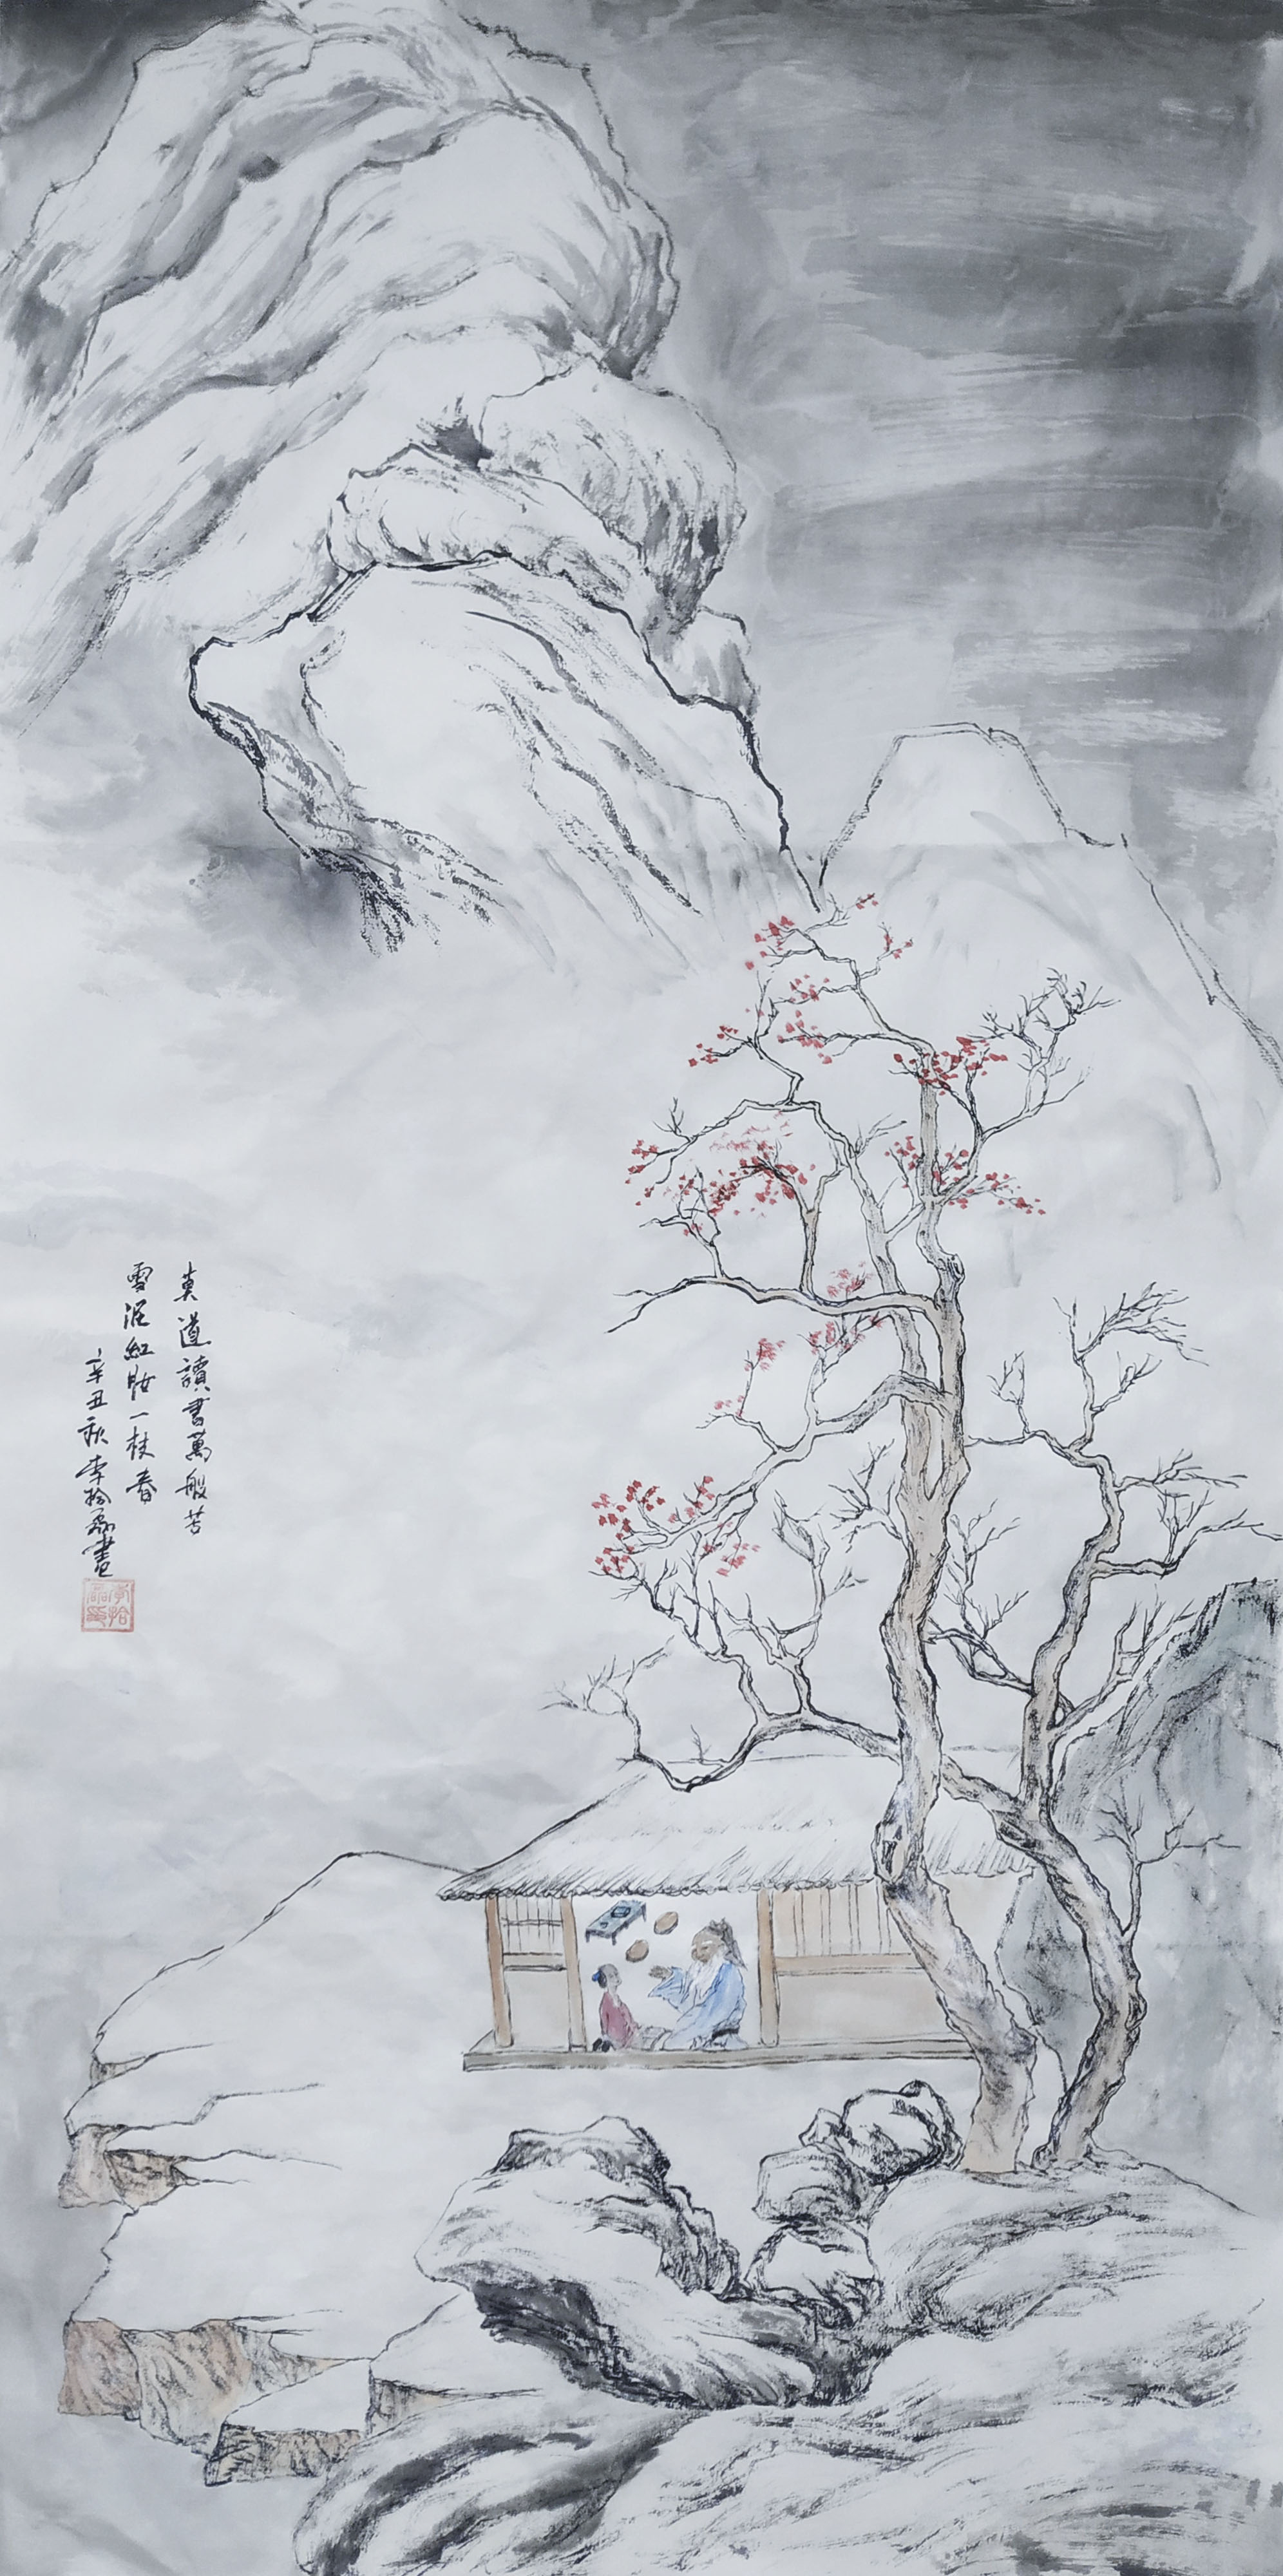 莫道讀書萬般苦
雪泥紅妝一枝春
辛丑秋李拾畫
李拾印